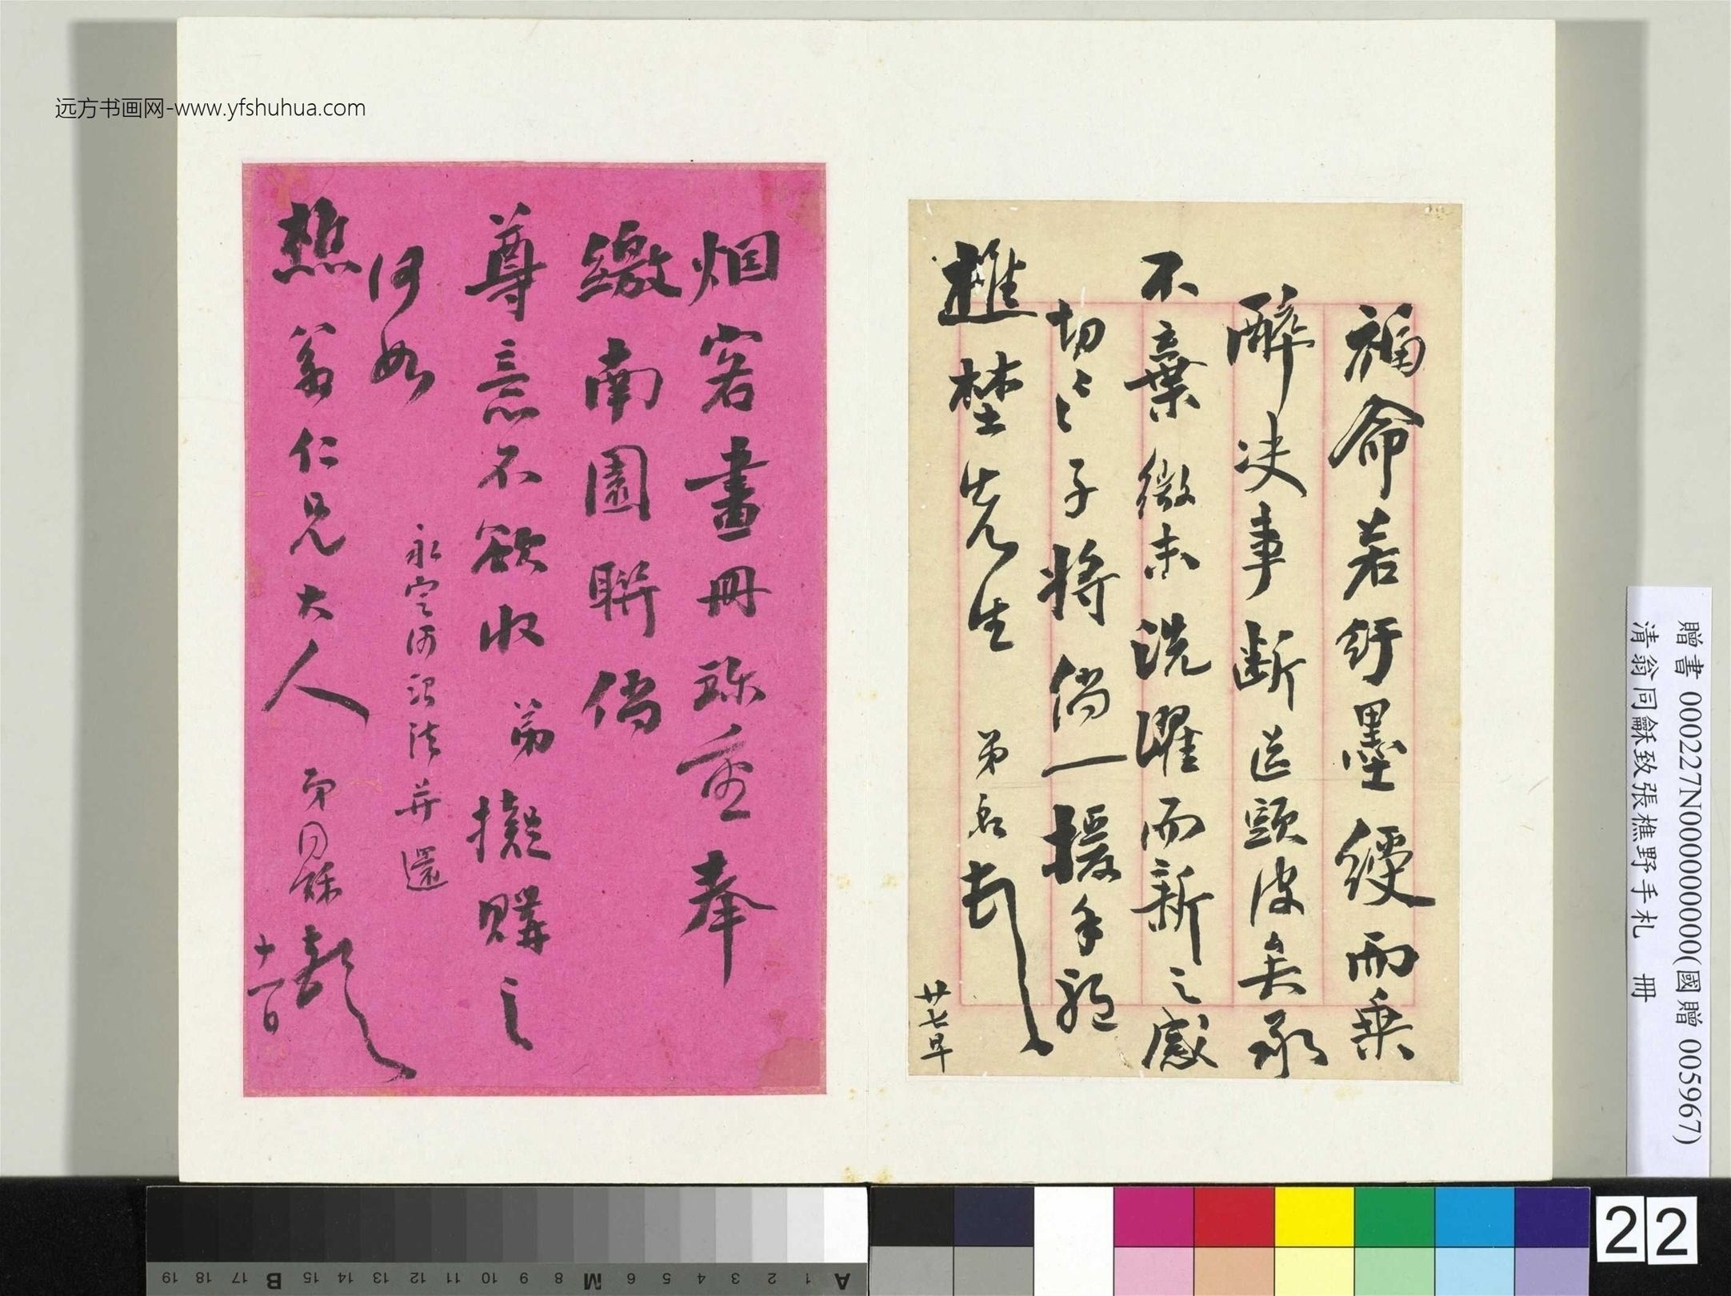 远方书画网-www.yfshuhua.com
福命若紆墨綬而乘
醉决事断送頭皮矣承
不棄微末洗濯而新之感
切〻子將倘一援手
樵埜先生 弟
廿七早
烟客畫冊珍重奉
繳南園聯倘
尊意不欲收弟擬購之
何如 永定河 并還
樵翁仁兄大人 弟同龢頓 十一日
贈書 000227N000000000(國贈 005967)
清翁同龢致張樵野手札 冊
A 1 2 3 4 5 6 M 8 9 10 11 12 13 14 15 B 17 18 19
22